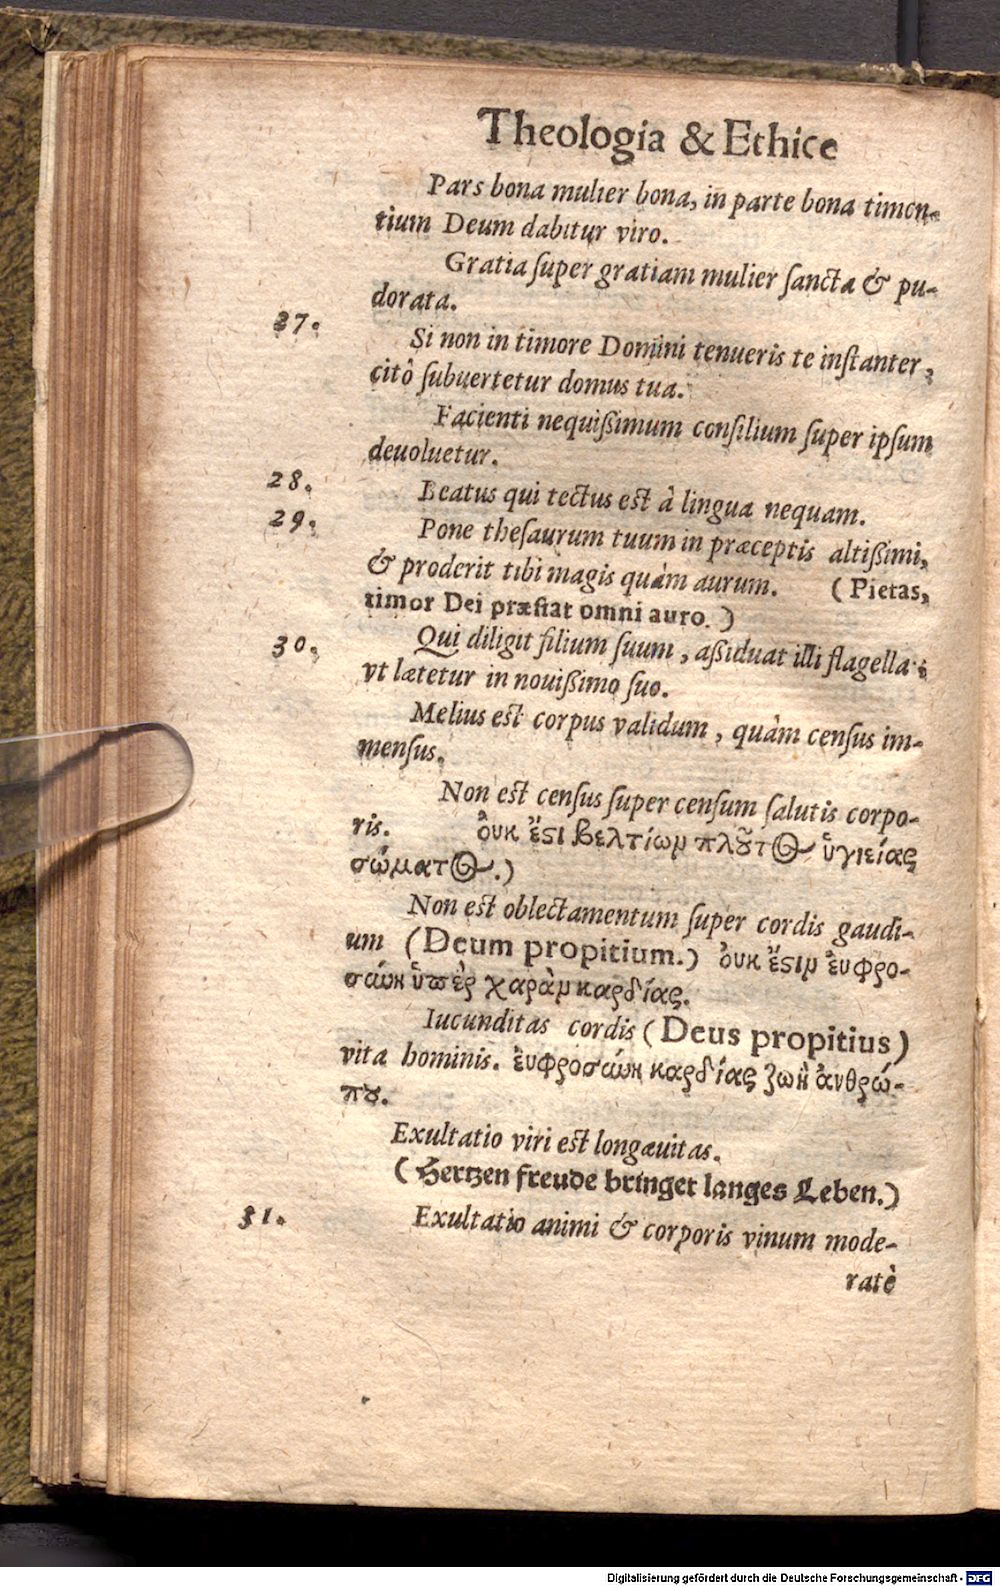 Theologia & Ethice
Pars bona mulier bona, in parte bona timen-
tium Deum dabitur viro.
Gratia ſuper gratiam mulier ſancta & pu-
dorata.
27. Si non in timore Domini tenueris te inſtanter,
citò ſubuertetur domus tua.
Facienti nequißimum conſilium ſuper ipſum
deuoluetur.
28. Beatus qui tectus est à lingua nequam.
29. Pone theſaurum tuum in præceptis altißimi,
& proderit tibi magis quàm aurum. (Pietas,
timor Dei præſtat omni auro.)
30. Qui diligit filium ſuum, aßiduat illi flagella;
vt lætetur in nouißimo ſuo.
Melius est corpus validum, quàm cenſus im-
menſus.
Non est cenſus ſuper cenſum ſalutis corpo-
ris. ὀυκ ἔϛι βελτίωμ πλȣ̃τος ὑγιείας
σώματος.)
Non est oblectamentum ſuper cordis gaudi-
um (Deum propitium.) ὀυκ ἔϛιμ ἐυφρο-
σύνη ὑπὲρ χαρὰμ καρδίας.
Iucunditas cordis (Deus propitius)
vita hominis. ἐυφροσύνη καρδίας ζωὴ ἀνθρώ-
πȣ.
Exultatio viri est longæuitas.
(Hertzen freude bringet langes Leben.)
31. Exultatio animi & corporis vinum mode-
ratè
Digitalisierung gefördert durch die Deutsche Forschungsgemeinschaft - DFG